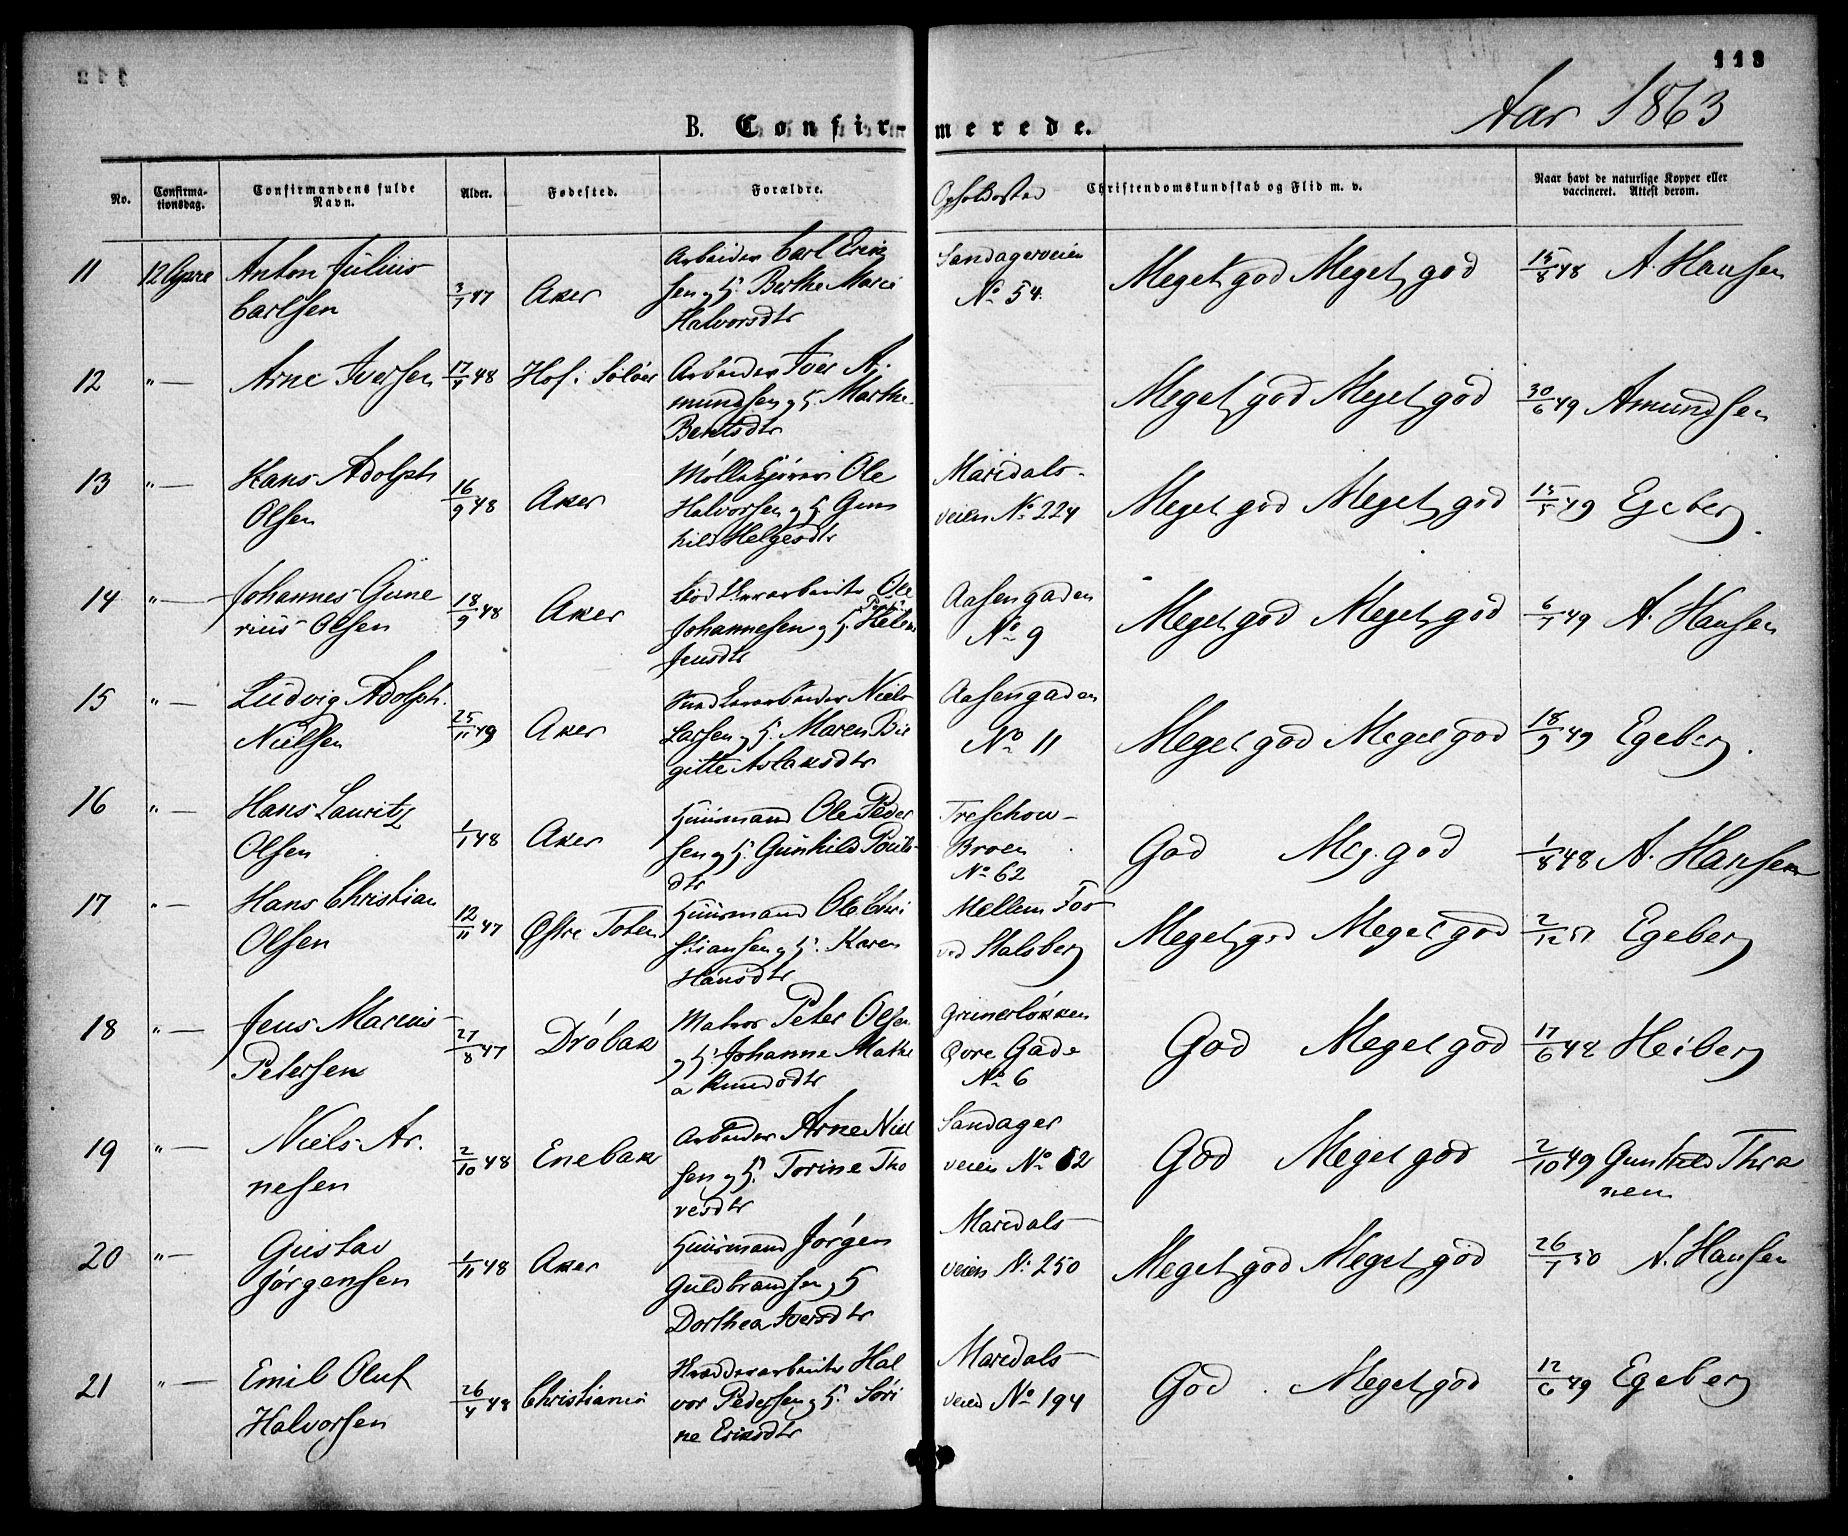 113
Aar 1863
B. Confirmerede.
No. Confirmationsdag. Confirmandens fulde Navn. Alder. Fødested. Forældre. Opholdssted Christendomskundskab og Flid m. v. Naar havt de naturlige Kopper eller vaccineret. Attest derom.
11 12 April Anton Julius Carlsen 3/1 47 Aker Arbeider Carl Eriksen og H. Berthe Marie Halvorsdtr Sandagerveien No 54. Meget god Meget god 15/8 48 A. Hansen
12 " — Arne Iversen 17/4 48 Hof i Soløer Arbeider Iver Amundsen og H. Marthe Berntsdtr Meget god Meget god 30/6 49 Amundsen
13 " — Hans Adolph Olsen 16/9 48 Aker Ole Halvorsen og H. Gunhild Helgesdtr Maridalsveien No 224 Meget god Meget god 15/5 49 Egeberg.
14 " — Johannes Gunerius Olsen 18/9 48 Aker Ole Johannesen og H. Helene Jensdtr Aasengaden No 9 Meget god Meget god 6/7 49 A. Hansen
15 " — Ludvig Adolph Nielsen 25/11 49 Aker Niels Larsen og H. Maren Birgitte Aslaksdtr Aasengaden No 11 Meget god Meget god 18/9 49 Egeberg.
16 " — Hans Lauritz Olsen 1/1 48 Aker Huusmand Ole Pedersen og H. Gunhild Poulsdtr Treschow-Broen No 62 God Meg. god 1/8 48 A. Hansen
17 " — Hans Christian Olsen 12/11 47 Østre Toten Huusmand Ole Christiansen og H. Karen Hansdtr Mellem For ved Stalsberg Meget god Meget god 2/12 51 Egeberg
18 " — Jens Marius Petersen 27/8 47 Drøbak Matros Peter Olsen og H. Johanne Mathea Knudsdtr Grünerløkken Øvre Gade No 6 God Meget god 17/6 48 Heiberg
19 " — Niels Arnesen 2/10 48 Enebak Arbeider Arne Nielsen og H. Torine Thoresdtr Sandagerveien No 62 God Meget god 2/10 49 Gunhild Thranem
20 " — Gustav Jørgensen 1/11 48 Aker Huusmand Jørgen Guldbrandsen og H Dorthea Iversdtr Maridalsveien No 250 Meget god Meget god 26/7 50 A. Hansen
21 " — Emil Oluf Halvorsen 26/4 48 Christiania Halvor Pedersen og H. Sørine Eriksdtr Maridalsveien No 194 God. Meget god 12/6 49 Egeberg